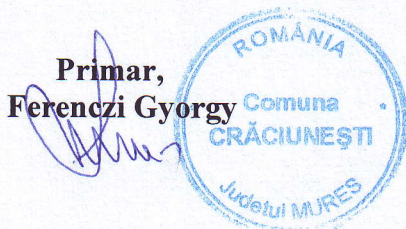 Primar,
Ferenczi Gyorgy
ROMÂNIA
Comuna
CRĂCIUNEŞTI
Judeţul MUREŞ